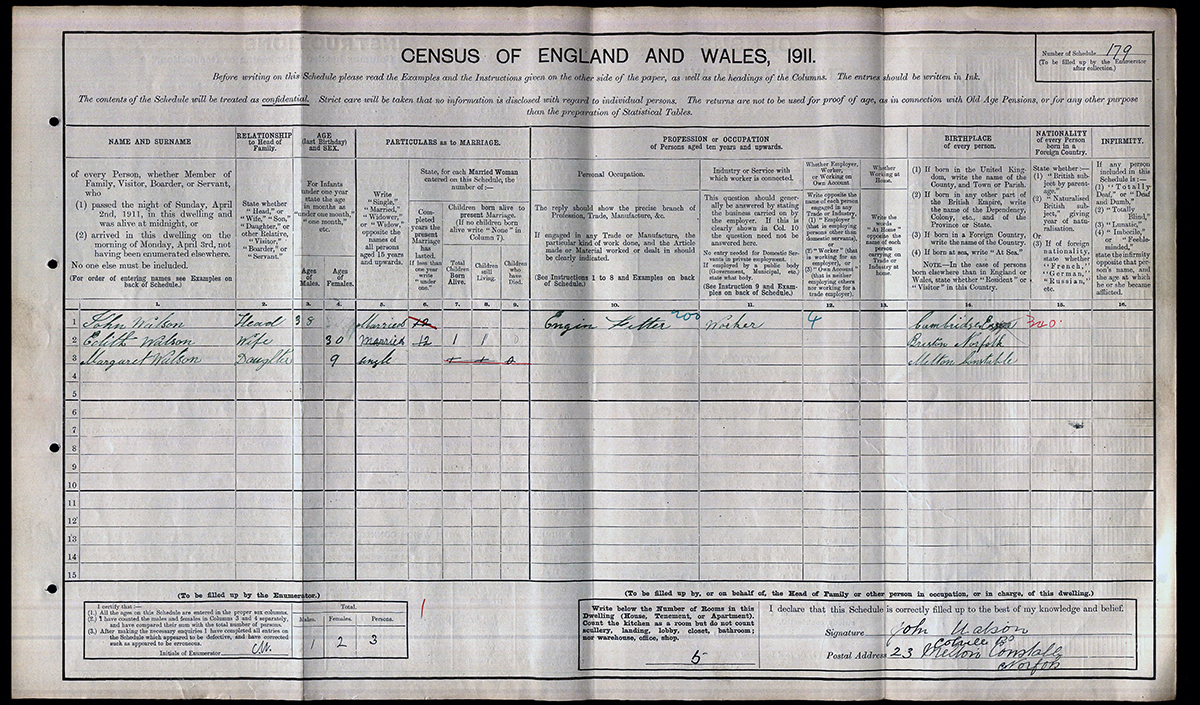 CENSUS OF ENGLAND AND WALES, 1911.
Number of Schedule 179
(To be filled up by the Enumerator
after collection.)
Before writing on this Schedule please read the Examples and the Instructions given on the other side of the paper, as well as the headings of the Columns. The entries should be written in Ink.
The contents of the Schedule will be treated as confidential. Strict care will be taken that no information is disclosed with regard to individual persons. The returns are not to be used for proof of age, as in connection with Old Age Pensions, or for any other purpose
than the preparation of Statistical Tables.
NAME AND SURNAME
of every Person, whether Member of
Family, Visitor, Boarder, or Servant,
who
(1) passed the night of Sunday, April
2nd, 1911, in this dwelling and
was alive at midnight, or
(2) arrived in this dwelling on the
morning of Monday, April 3rd, not
having been enumerated elsewhere.
No one else must be included.
(For order of entering names see Examples on
back of Schedule.)
1.
RELATIONSHIP
to Head of
Family.
State whether
"Head," or
"Wife," "Son,"
"Daughter," or
other Relative,
"Visitor,"
"Boarder," or
"Servant."
2.
AGE
(last Birthday)
and SEX.
For Infants
under one year
state the age
in months as
"under one month,"
"one month,"
etc.
Ages
of
Males.
3.
Ages
of
Females.
4.
PARTICULARS as to MARRIAGE.
Write
"Single,"
"Married,"
"Widower,"
or "Widow,"
opposite the
names of
all persons
aged 15 years
and upwards.
5.
State, for each Married Woman
entered on this Schedule, the
number of :—
Com-
pleted
years the
present
Marriage
has
lasted.
If less than
one year
write
"under
one."
6.
Children born alive to
present Marriage.
(If no children born
alive write "None" in
Column 7).
Total
Children
Born
Alive.
7.
Children
still
Living.
8.
Children
who
have
Died.
9.
PROFESSION or OCCUPATION
of Persons aged ten years and upwards.
Personal Occupation.
The reply should show the precise branch of
Profession, Trade, Manufacture, &c.
If engaged in any Trade or Manufacture, the
particular kind of work done, and the Article
made or Material worked or dealt in should
be clearly indicated.
(See Instructions 1 to 8 and Examples on back
of Schedule.)
10.
Industry or Service
with which worker is connected.
This question should gener-
ally be answered by stating
the business carried on by
the employer. If this is
clearly shown in Col. 10
the question need not be
answered here.
No entry needed for Domestic Ser-
vants in private employment.
If employed by a public body
(Government, Municipal, etc.)
state what body.
(See Instruction 9 and Exam-
ples on back of Schedule.)
11.
Whether Employer,
Worker,
or Working on
Own Account.
Write opposite the
name of each person
engaged in any
Trade or Industry,
(1) "Employer"
(that is employing
persons other than
domestic servants),
or
(2) "Worker" (that
is working for an
employer), or
(3) "Own Account"
(that is neither
employing others
nor working for a
trade employer).
12.
Whether
Working at
Home.
Write the
words
"At Home"
opposite the
name of each
person
carrying on
Trade or
Industry at
home.
13.
BIRTHPLACE
of every person.
(1) If born in the United King-
dom, write the name of the
County, and Town or Parish.
(2) If born in any other part of
the British Empire, write
the name of the Dependency,
Colony, etc., and of the
Province or State.
(3) If born in a Foreign Country,
write the name of the Country.
(4) If born at sea, write "At Sea."
NOTE.—In the case of persons
born elsewhere than in England or
Wales, state whether "Resident" or
"Visitor" in this Country.
14.
NATIONALITY
of every Person
born in a
Foreign Country.
State whether :—
(1) "British sub-
ject by parent-
age."
(2) "Naturalised
British sub-
ject," giving
year of natu-
ralisation.
Or
(3) If of foreign
nationality,
state whether
"French,"
"German,"
"Russian,"
etc.
15.
INFIRMITY.
If any person
included in this
Schedule is :—
(1) "Totally
Deaf," or "Deaf
and Dumb,"
(2) "Totally
Blind,"
(3) "Lunatic,"
(4) "Imbecile,"
or "Feeble-
minded,"
state the infirmity
opposite that per-
son's name, and
the age at which
he or she became
afflicted.
16.
1 John Watson Head 38 Married 12 Engin Fitter 200 Worker 4 Cambridge 320.
2 Edith Watson Wife 30 Married 12 1 1 0 Norfolk
3 Margaret Watson Daughter 9 single Melton Constable
4
5
6
7
8
9
10
11
12
13
14
15
(To be filled up by the Enumerator.)
I certify that :—
(1.) All the ages on this Schedule are entered in the proper sex columns.
(2.) I have counted the males and females in Columns 3 and 4 separately,
and have compared their sum with the total number of persons.
(3.) After making the necessary enquiries I have completed all entries on
the Schedule which appeared to be defective, and have corrected
such as appeared to be erroneous.
Initials of Enumerator
Total.
Males. Females. Persons.
1 2 3
1
(To be filled up by, or on behalf of, the Head of Family or other person in occupation, or in charge, of this dwelling.)
Write below the Number of Rooms in this
Dwelling (House, Tenement, or Apartment).
Count the kitchen as a room but do not count
scullery, landing, lobby, closet, bathroom;
nor warehouse, office, shop.
5
I declare that this Schedule is correctly filled up to the best of my knowledge and belief.
Signature John Watson
Colville Rd
Postal Address 23 Melton Constable
Norfolk